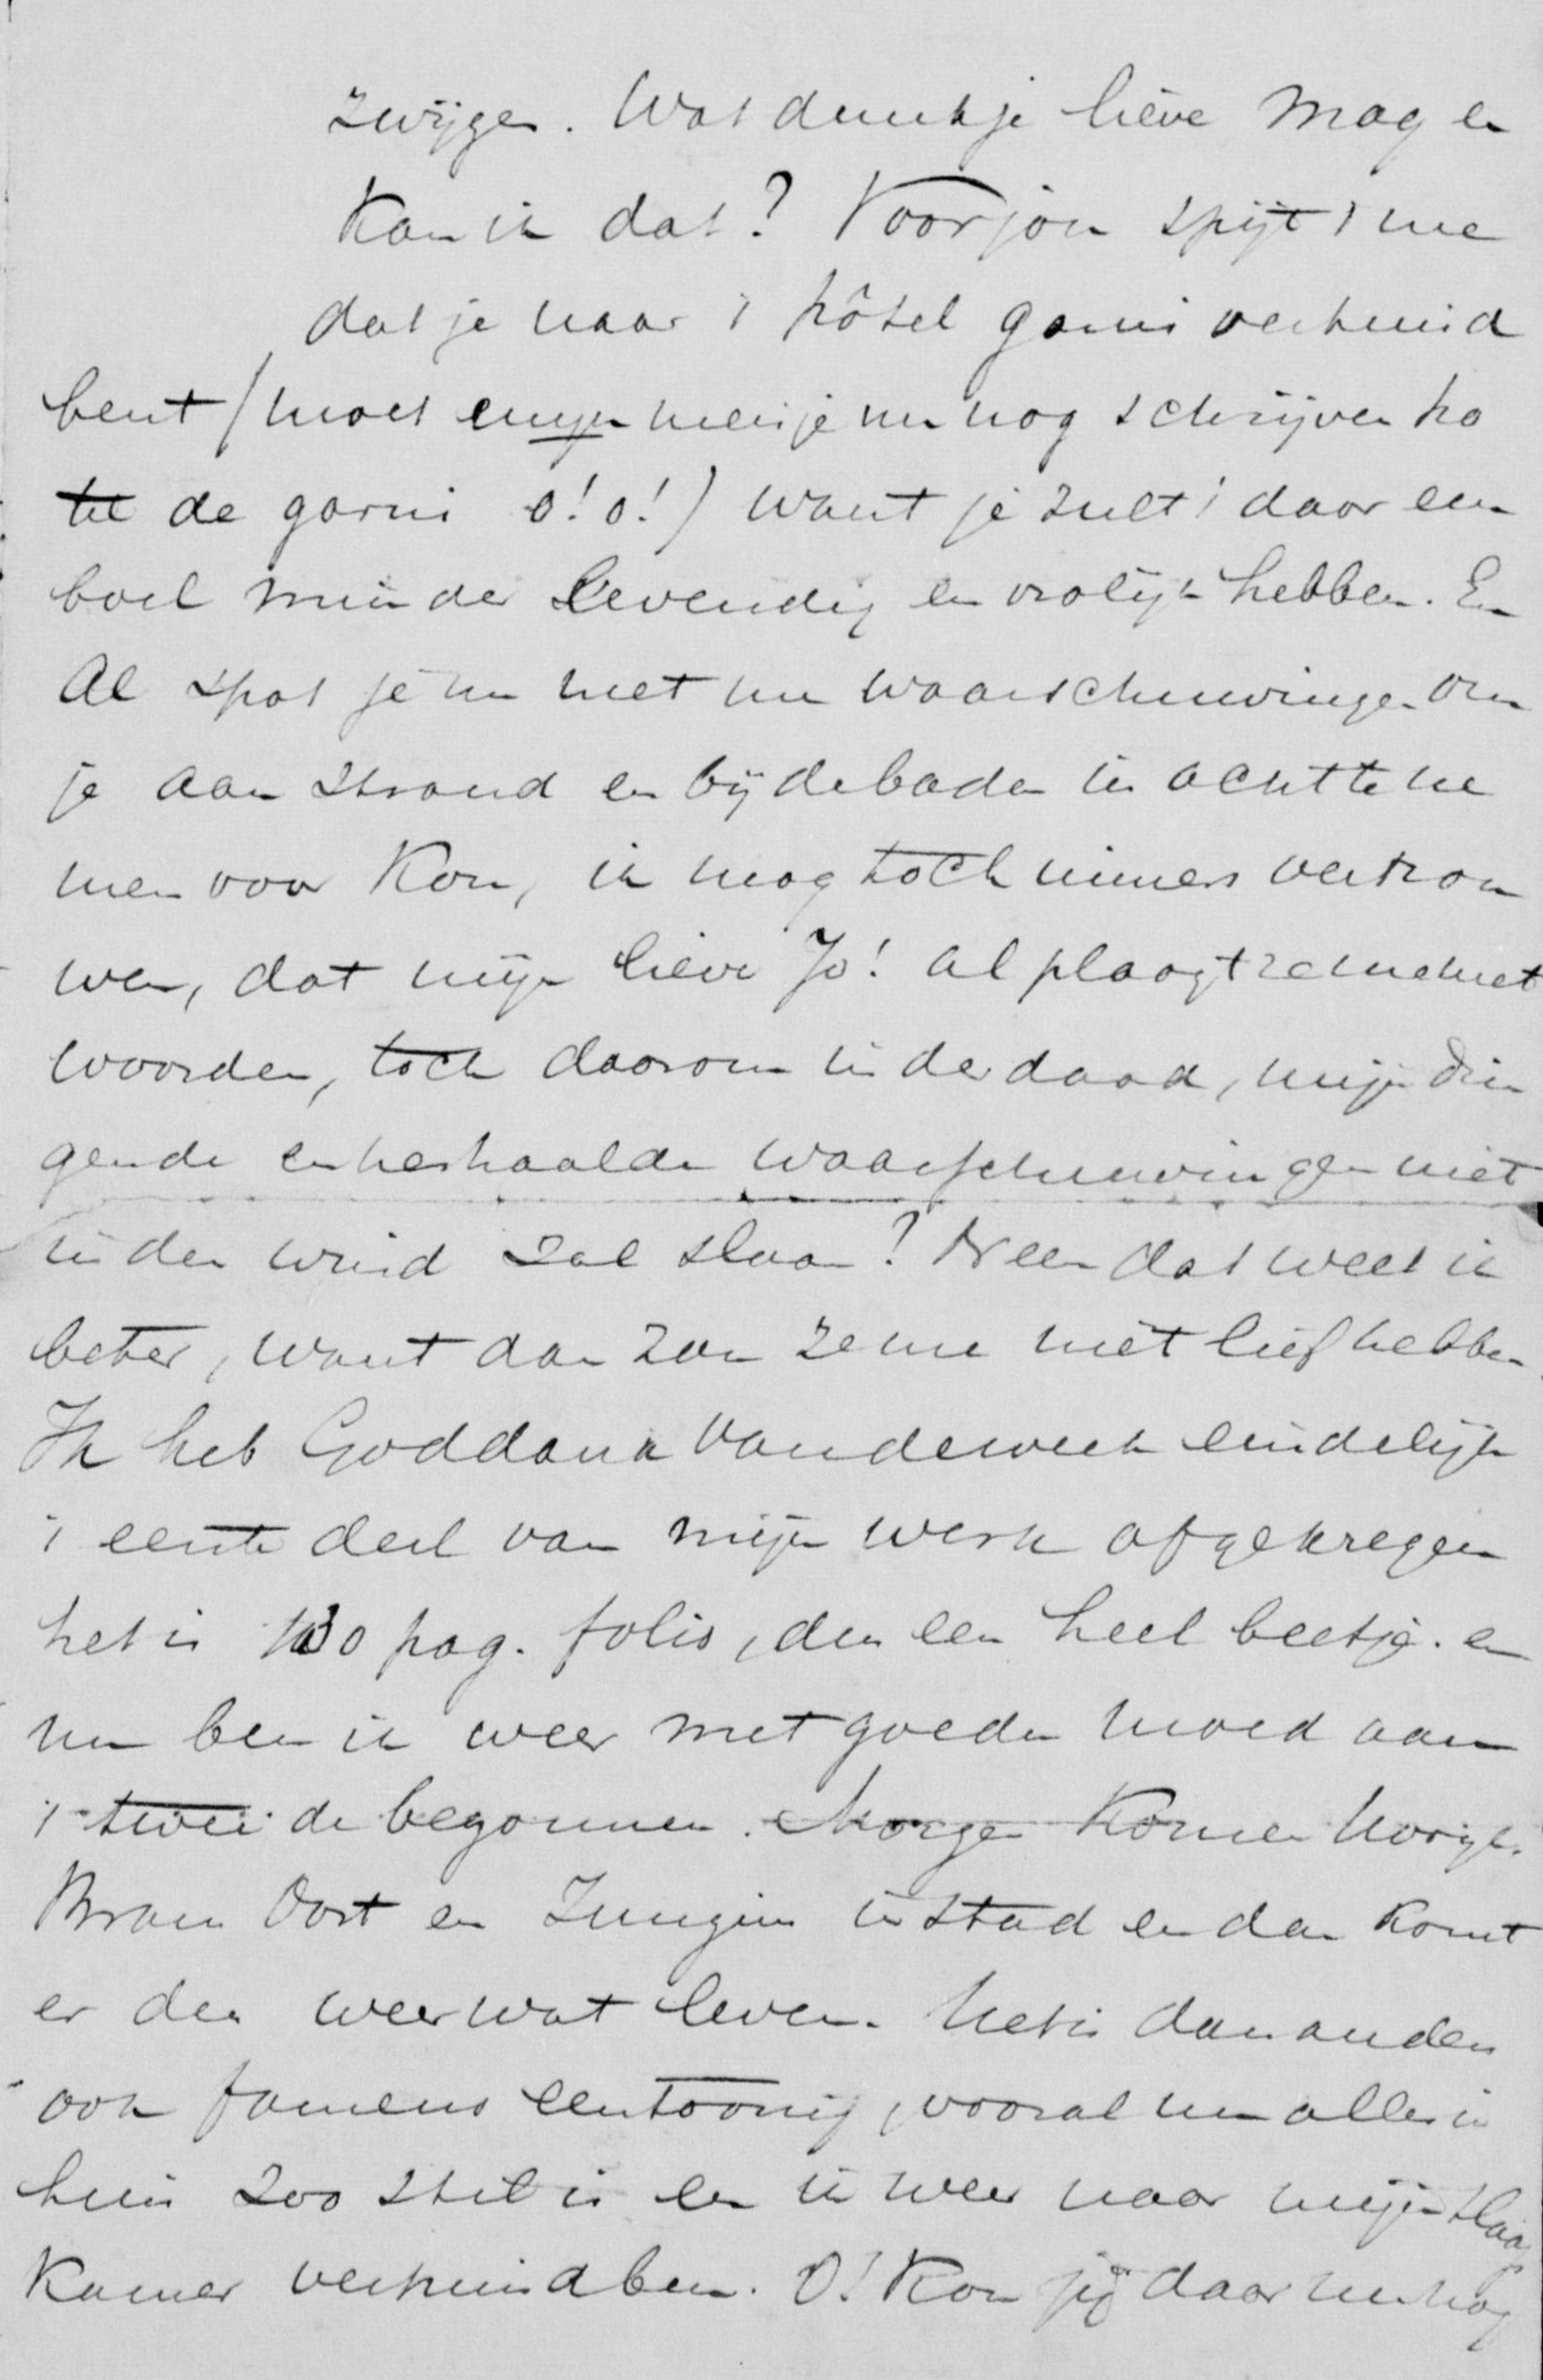 zwijgen. Wat dunkt je lieve mag en
kan ik dat? Voor jou spijt 't me
dat je naar 't hôtel garni verhuisd
bent (moet mijn meisje nu nog schrijven ho
tel de garni o! o!) want je zult 't daar een
boel minder levendig en vrolijk hebben. En
al spot je nu met mn waarschuwingen om
je aan strand en bij de baden in acht te ne
men voor kou, ik mag toch immers vertrou
wen, dat mijn lieve Jo! al plaagt ze me met
woorden, toch daarom inderdaad, mijn drin
gende en herhaalde waarschuwingen niet
in den wind zal slaan? Neen dat weet ik
beter, want dan zou ze me niet lief hebben.
Ik heb Goddank van de week eindelijk
't eerste deel van mijn werk afgekregen
het is 130 pag. folio, dus een heel beetje. en
nu ben ik weer met goeden moed aan
't tweede begonnen. Morgen komen
Bram Oort en in stad en dan komt
er dus weer wat leven. Het is dan anders
ook fameus eentoonig, vooral nu alles in
huis zoo stil is en ik weer naar mijn slaap
kamer verhuisd ben. O! Kon jij daar nu nog